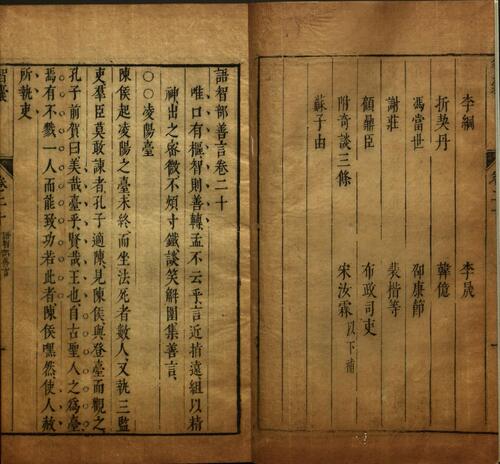 李綱 李晟
折契丹 韓億
馮當世 邵康節
謝莊 裴楷等
顧鼎臣 布政司吏
附奇談三條 宋汝霖以下補
蘇子由
語智部善言卷二十
唯口有樞智則善轉孟不云乎言近指遠組以精
神出之密微不煩寸鐵談笑解圍集善言
○○凌陽臺
陳侯起凌陽之臺未終而坐法死者數人又執三監
吏羣臣莫敢諫者孔子適陳見陳侯與登臺而觀之
孔子前賀曰美哉臺乎賢哉王也自古聖人之為臺
焉有不戮一人而能致功若此者陳侯嘿然使人赦
所執吏
智囊 卷二十 語智部善言